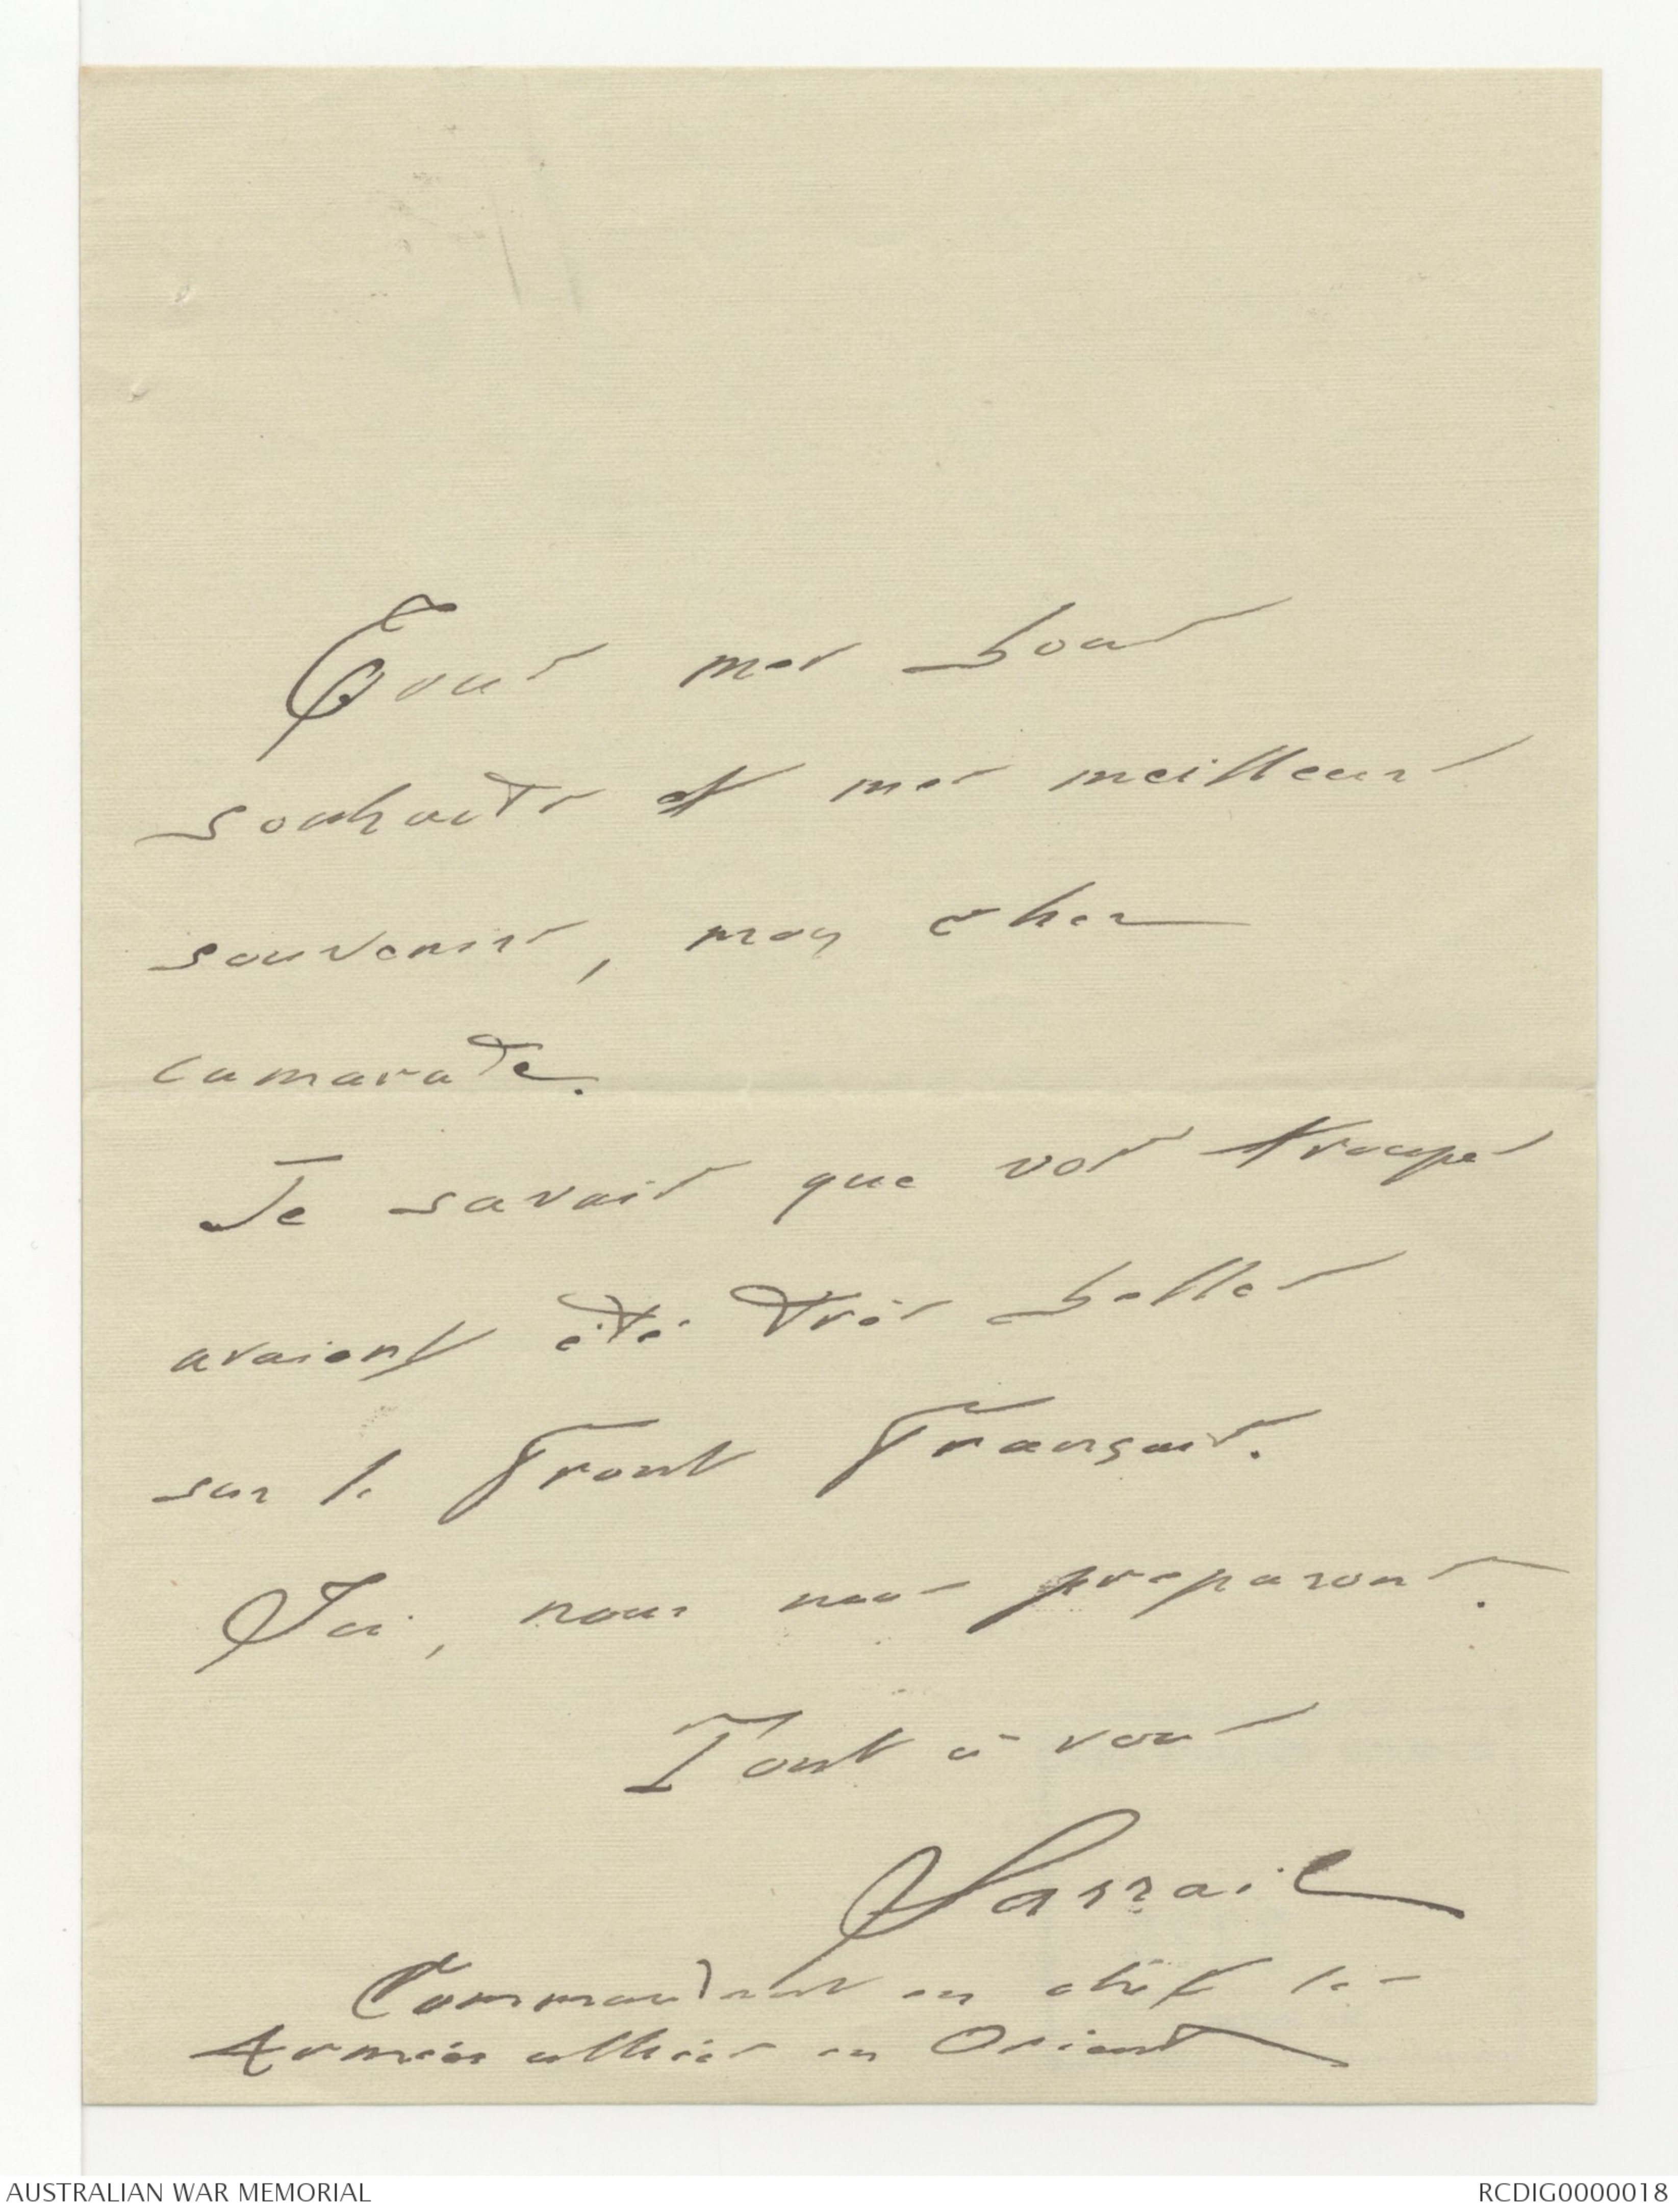 Tous mes bons
souhaits et mes meilleurs
souvenirs, mon cher
camarade.
Je savais que vos troupes
avaient été très belles
sur le Front Français.
Ici, nous nous preparons.
Tout à vous
Sarrail
Commandant en chef les
Armées alliées en Orient
AUSTRALIAN WAR MEMORIAL
RCDIG0000018